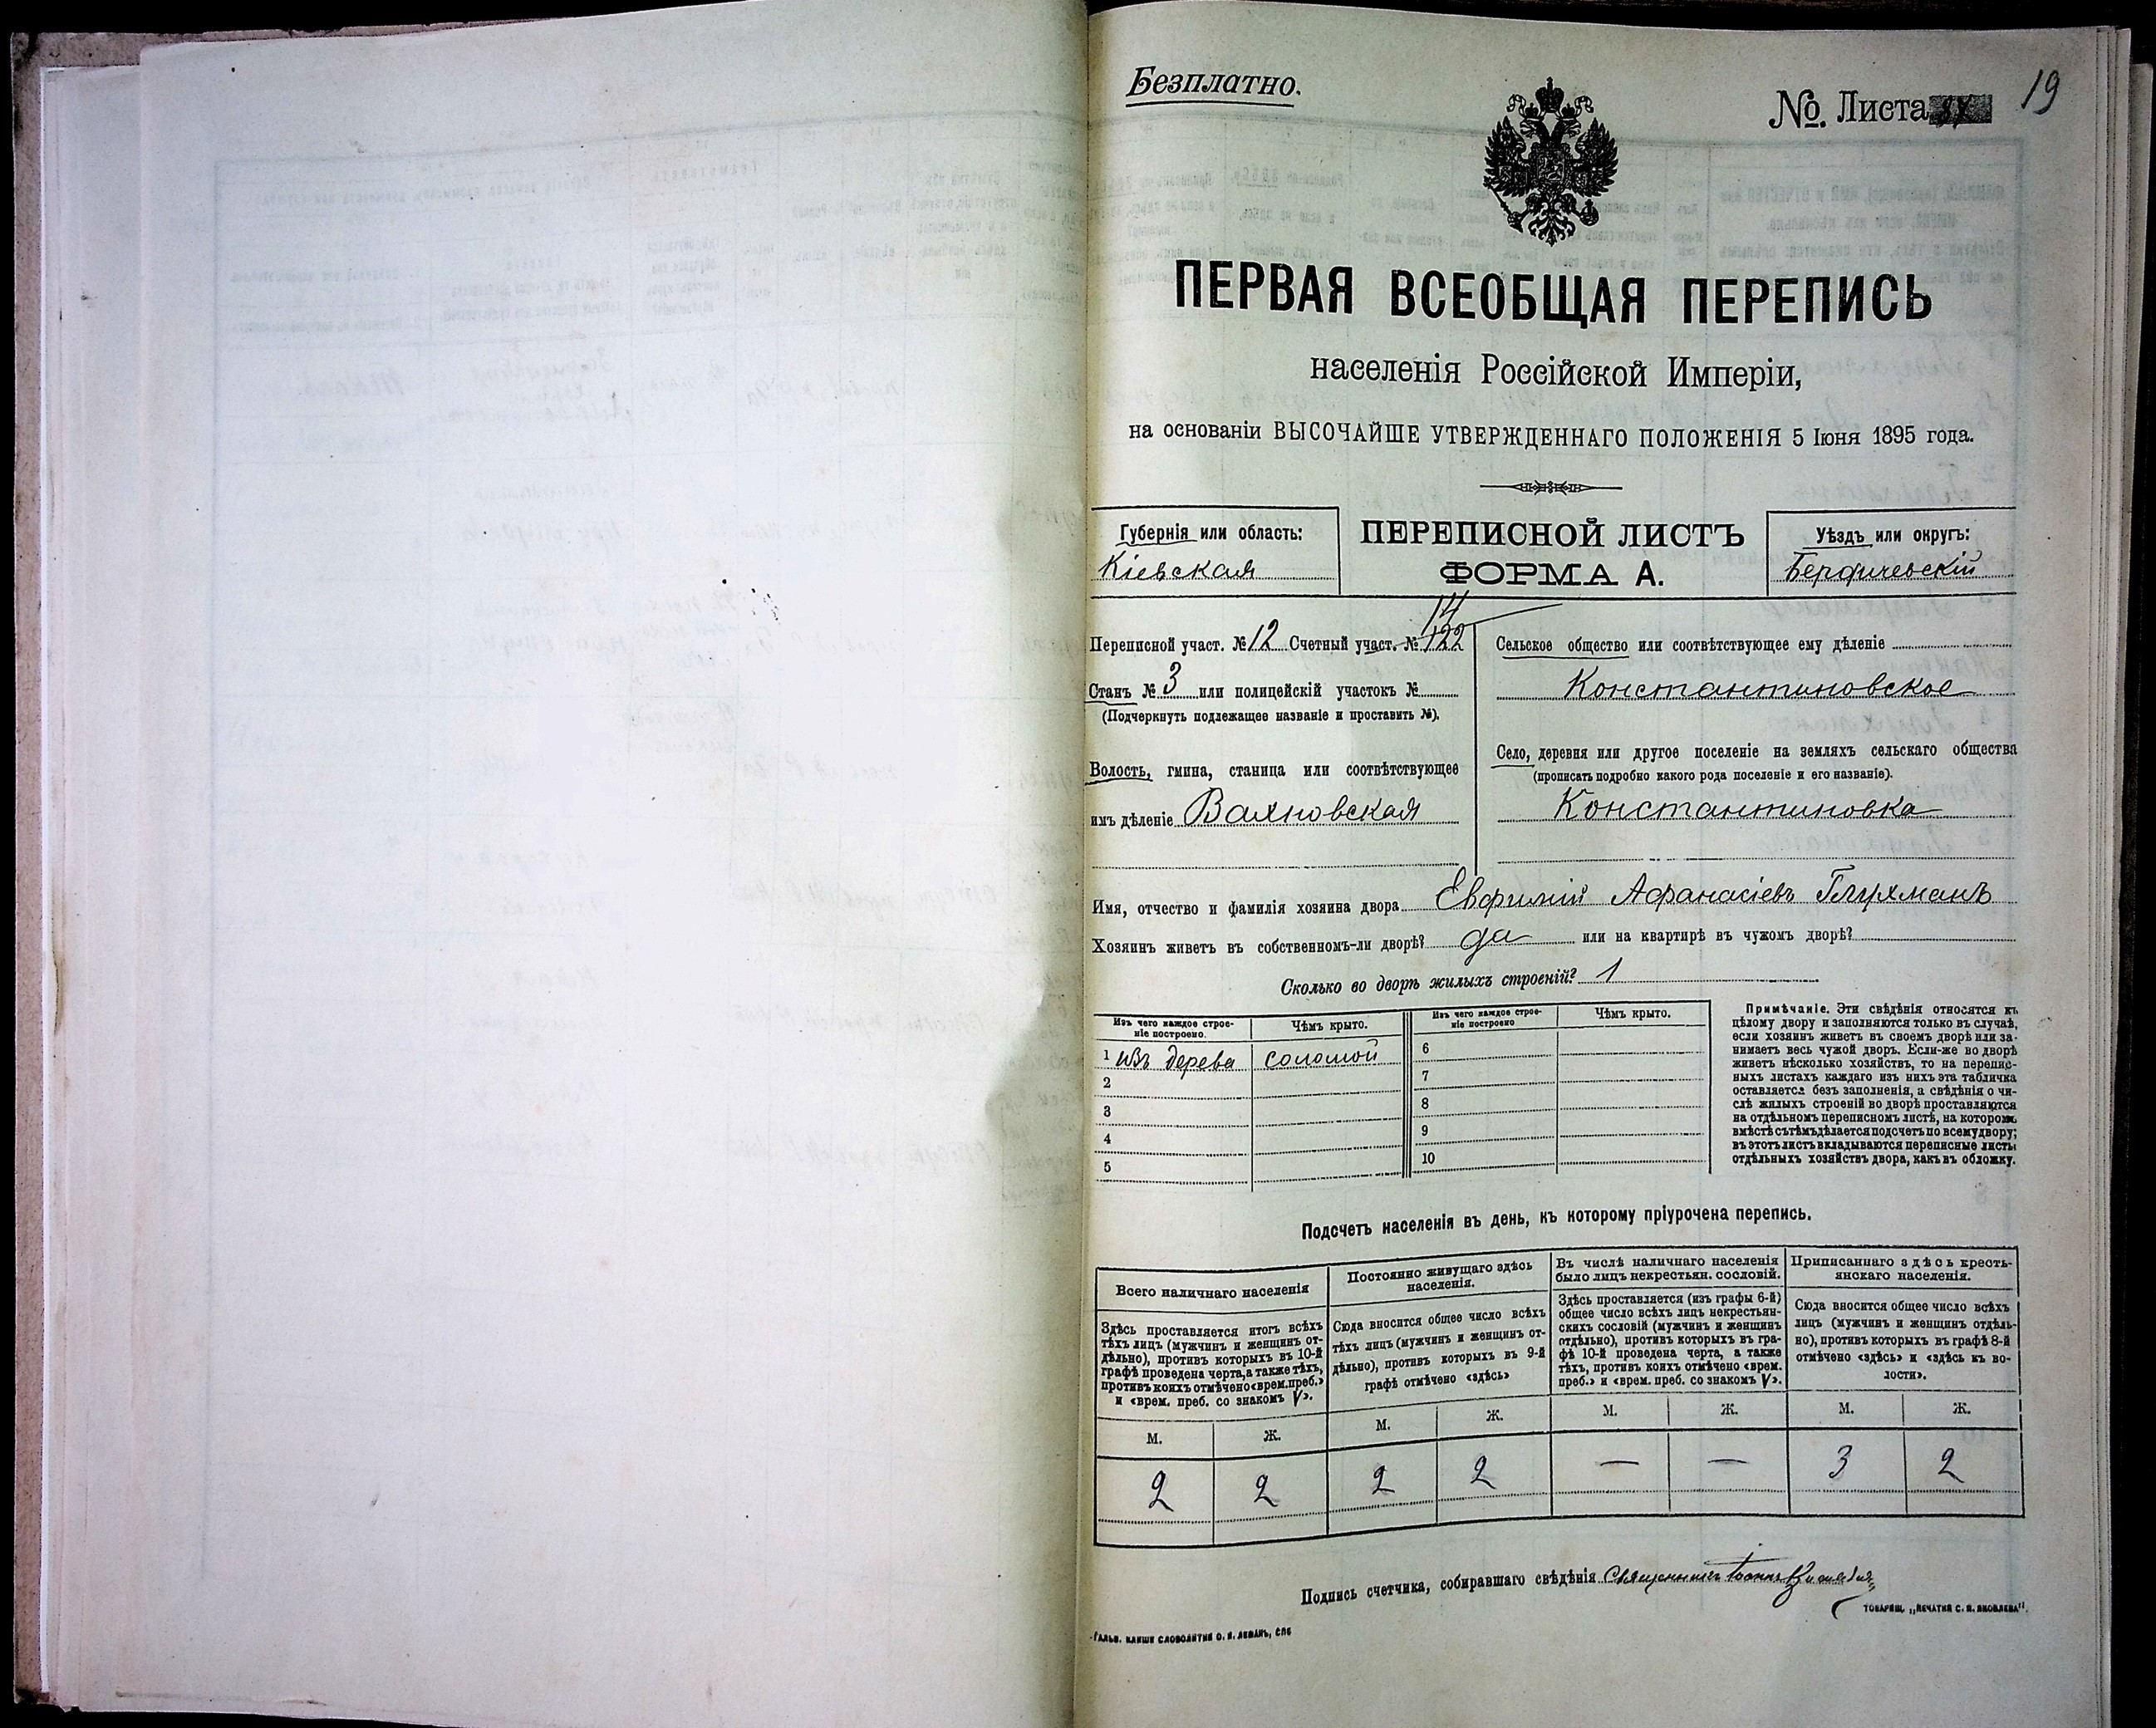 Безплатно.
№. Листа
19
ПЕРВАЯ ВСЕОБЩАЯ ПЕРЕПИСЬ
населенія Россійской Имперіи,
на основаніи ВЫСОЧАЙШЕ УТВЕРЖДЕННАГО ПОЛОЖЕНІЯ 5 Іюня 1895 года.
Губернія или область:
Кіевская
ПЕРЕПИСНОЙ ЛИСТЪ
ФОРМА А.
Уѣздъ или округъ:
Бердичевскій
14
Переписной участ. № 12 Счетный участ. № 122
Станъ № 3 или полицейскій участокъ №
(Подчеркнуть подлежащее названіе и проставить №).
Волость, гмина, станица или соотвѣтствующее
имъ дѣленіе Вахновская
Сельское общество или соотвѣтствующее ему дѣленіе
Константиновское
Село, деревня или другое поселеніе на земляхъ сельскаго общества
(прописать подробно какого рода поселеніе и его названіе).
Константиновка
Имя, отчество и фамилія хозяина двора Евфимій Афанасіевъ Глухманъ
Хозяинъ живетъ въ собственномъ-ли дворѣ? да или на квартирѣ въ чужомъ дворѣ?
Сколько во дворѣ жилыхъ строеній? 1
Изъ чего каждое строе-
ніе построено.
Чѣмъ крыто.
1 изъ дерева соломой
2
3
4
5
Изъ чего каждое строе-
ніе построено
Чѣмъ крыто.
6
7
8
9
10
Примѣчаніе. Эти свѣдѣнія относятся къ
цѣлому двору и заполняются только въ случаѣ,
если хозяинъ живетъ въ своемъ дворѣ или за-
нимаетъ весь чужой дворъ. Если-же во дворѣ
живетъ нѣсколько хозяйствъ, то на перепис-
ныхъ листахъ каждаго изъ нихъ эта табличка
оставляется безъ заполненія, а свѣдѣнія о чи-
слѣ жилыхъ строеній во дворѣ проставляются
на отдѣльномъ переписномъ листѣ, на которомъ
вмѣстѣ съ тѣмъ дѣлается подсчетъ по всему двору;
въ этотъ листъ вкладываются переписные листы
отдѣльныхъ хозяйствъ двора, какъ въ обложку.
Подсчетъ населенія въ день, къ которому пріурочена перепись.
Всего наличнаго населенія
Здѣсь проставляется итогъ всѣхъ
тѣхъ лицъ (мужчинъ и женщинъ от-
дѣльно), противъ которыхъ въ 10-й
графѣ проведена черта, а также тѣхъ,
противъ коихъ отмѣчено «врем. преб.»
и «врем. преб. со знакомъ V».
М. Ж.
2 2
Постоянно живущаго здѣсь
населенія.
Сюда вносится общее число всѣхъ
тѣхъ лицъ (мужчинъ и женщинъ от-
дѣльно), противъ которыхъ въ 9-й
графѣ отмѣчено «здѣсь»
М. Ж.
2 2
Въ числѣ наличнаго населенія
было лицъ некрестьян. сословій.
Здѣсь проставляется (изъ графы 6-й)
общее число всѣхъ лицъ некрестьян-
скихъ сословій (мужчинъ и женщинъ
отдѣльно), противъ которыхъ въ гра-
фѣ 10-й проведена черта, а также
тѣхъ, противъ коихъ отмѣчено «врем.
преб.» и «врем. преб. со знакомъ V».
М. Ж.
— —
Приписаннаго здѣсь кресть-
янскаго населенія.
Сюда вносится общее число всѣхъ
лицъ (мужчинъ и женщинъ отдѣль-
но), противъ которыхъ въ графѣ 8-й
отмѣчено «здѣсь» и «здѣсь къ во-
лости».
М. Ж.
3 2
Подпись счетчика, собиравшаго свѣдѣнія Священникъ Іоаннъ
ТОВАРИЩ. „ПЕЧАТНЯ С. П. ЯКОВЛЕВА".
ГАЛЬВ. КЛИШЕ СЛОВОЛИТНИ О. И. ЛЕМАНЪ, СПБ